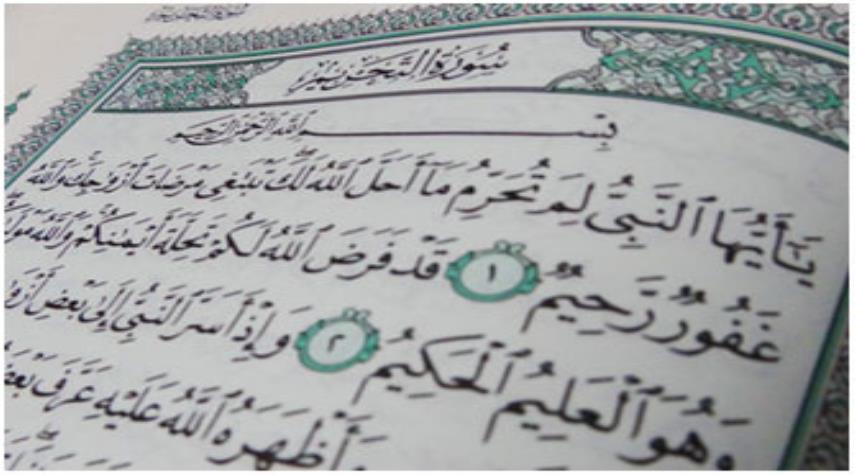 سُورَةُ التَّحْرِيمِ
بِسْمِ ٱللَّهِ ٱلرَّحْمَٰنِ ٱلرَّحِيمِ
يَٰٓأَيُّهَا ٱلنَّبِىُّ لِمَ تُحَرِّمُ مَآ أَحَلَّ ٱللَّهُ لَكَ ۖ تَبْتَغِى مَرْضَاتَ أَزْوَٰجِكَ ۚ وَٱللَّهُ
غَفُورٌ رَّحِيمٌ ١ قَدْ فَرَضَ ٱللَّهُ لَكُمْ تَحِلَّةَ أَيْمَٰنِكُمْ ۚ وَٱللَّهُ
وَهُوَ ٱلْعَلِيمُ ٱلْحَكِيمُ ٢ وَإِذْ أَسَرَّ ٱلنَّبِىُّ إِلَىٰ بَعْضِ
وَأَظْهَرَهُ ٱللَّهُ عَلَيْهِ عَرَّفَ